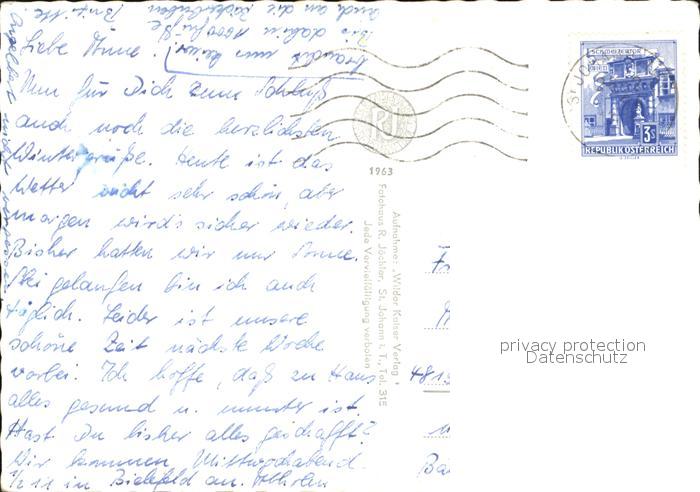 Liebe Änne!
Nun für Dich zum Schluß
auch noch die herzlichsten
Wintergrüße. Heute ist das
Wetter nicht sehr schön, aber
morgen wird's sicher wieder.
Bisher hatten wir nur Sonne.
Ski gelaufen bin ich auch
täglich. Leider ist unsere
schöne Zeit nächste Woche
vorbei. Ich hoffe, daß zu Haus
alles gesund u. munter ist.
Hast Du bisher alles geschafft?
Wir kommen Mittwochabend
1/2 11 in Bielefeld an.
bis dahin 1000 Grüße
auch an die
1963
Aufnahme: „Wilder Kaiser Verlag"
Fotohaus R. Jöchler, St. Johann i. T., Tel. 315
Jede Vervielfältigung verboten
ST. JO
SCHWEIZERTOR
WIEN
3s
REPUBLIK ÖSTERREICH
481
privacy protection
Datenschutz